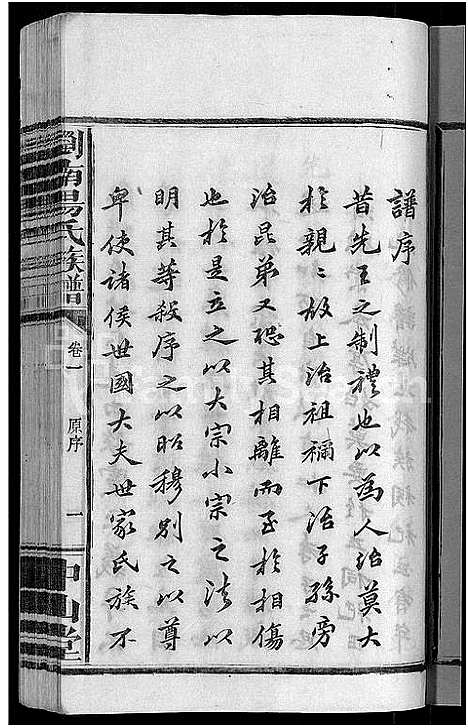 譜序
昔先王之制禮也以為人治莫大
於親〻故上治祖禰下治子孫旁
治昆弟又恐其相離而至於相傷
也於是立之以大宗小宗之法以
明其等殺序之以昭穆別之以尊
卑使諸侯世國大夫世家氏族不
瀏南湯氏族譜
卷一
原序
一
中山堂